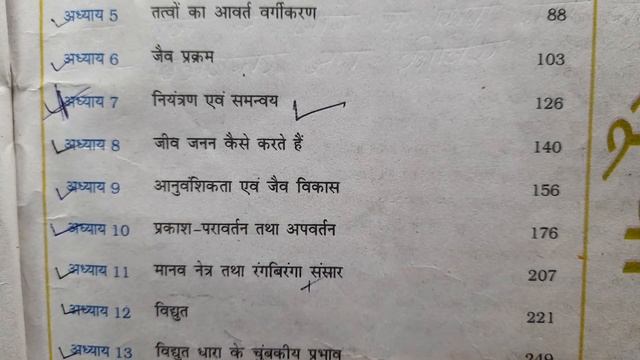 अध्याय 5 तत्वों का आवर्त वर्गीकरण 88
अध्याय 6 जैव प्रक्रम 103
अध्याय 7 नियंत्रण एवं समन्वय 126
अध्याय 8 जीव जनन कैसे करते हैं 140
अध्याय 9 आनुवंशिकता एवं जैव विकास 156
अध्याय 10 प्रकाश-परावर्तन तथा अपवर्तन 176
अध्याय 11 मानव नेत्र तथा रंगबिरंगा संसार 207
अध्याय 12 विद्युत 221
अध्याय 13 विद्युत धारा के चुंबकीय प्रभाव 249